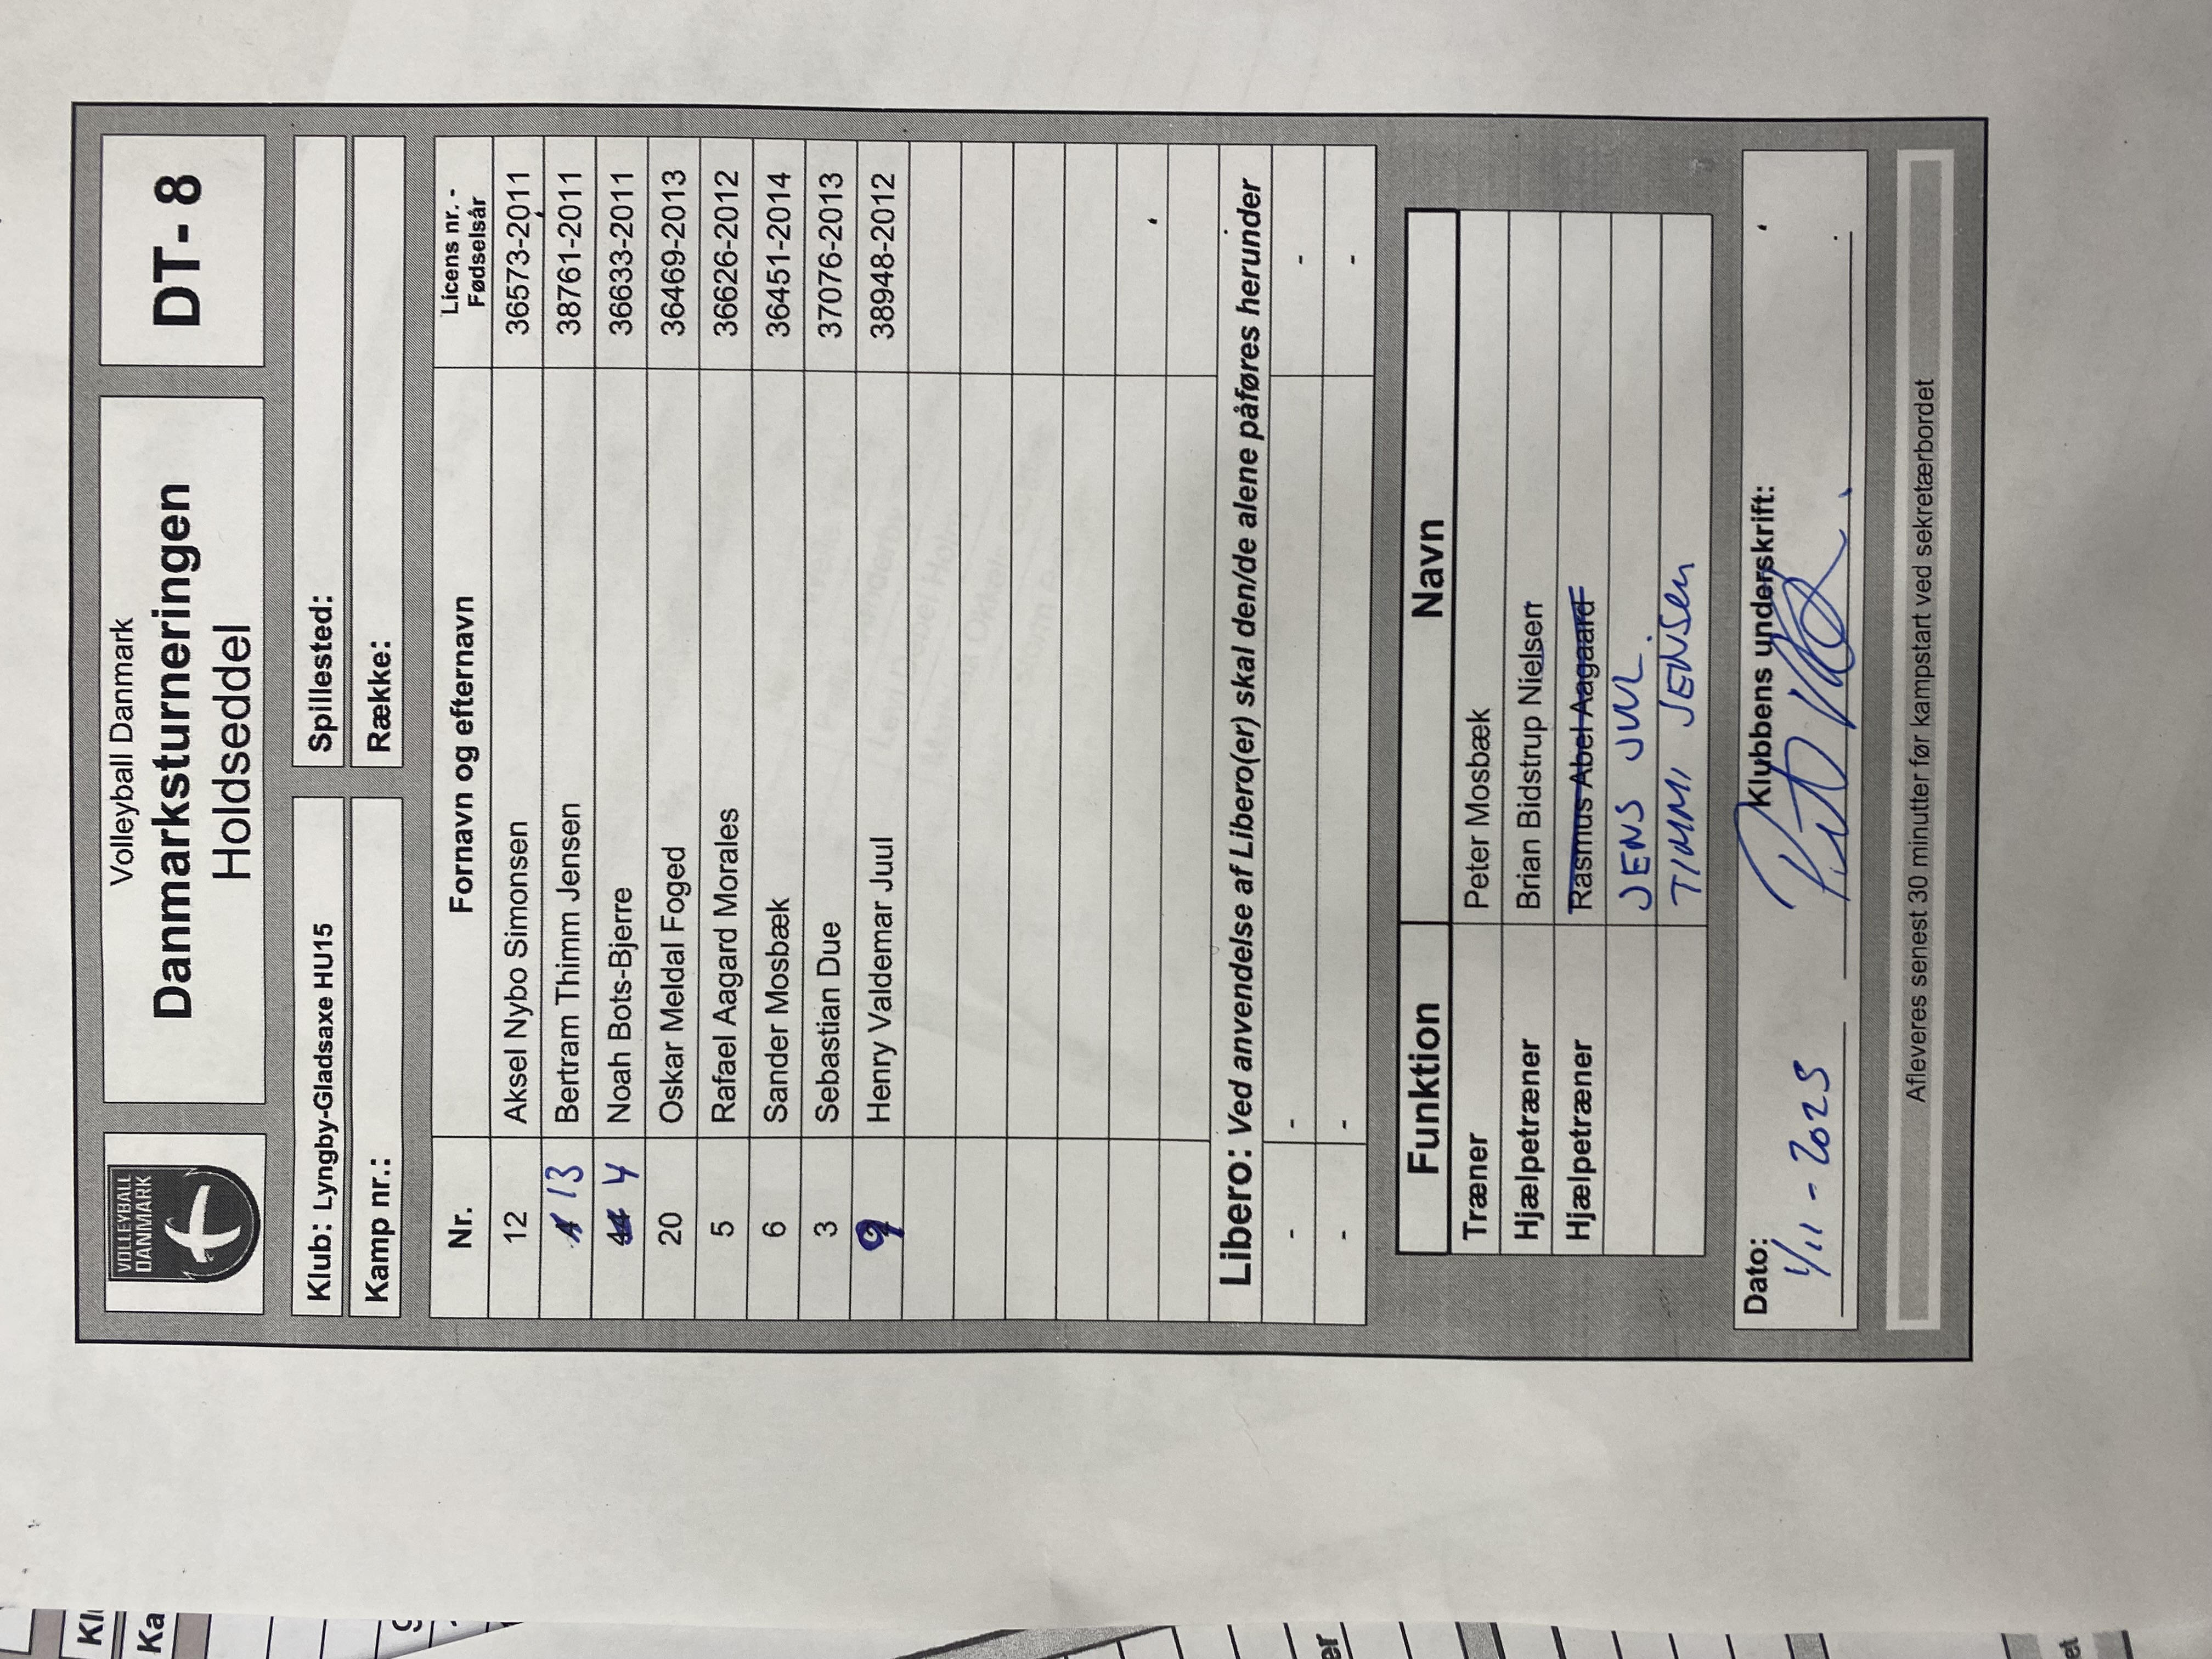 VOLLEYBALL
DANMARK
Volleyball Danmark
Danmarksturneringen
Holdseddel
DT- 8
Klub: Lyngby-Gladsaxe HU15
Spillested:
Kamp nr.:
Række:
Nr. Fornavn og efternavn Licens nr. - Fødselsår
12 Aksel Nybo Simonsen 36573-2011
13 Bertram Thimm Jensen 38761-2011
4 Noah Bots-Bjerre 36633-2011
20 Oskar Meldal Foged 36469-2013
5 Rafael Aagard Morales 36626-2012
6 Sander Mosbæk 36451-2014
3 Sebastian Due 37076-2013
9 Henry Valdemar Juul 38948-2012
Libero: Ved anvendelse af Libero(er) skal den/de alene påføres herunder
- - -
- - -
Funktion Navn
Træner Peter Mosbæk
Hjælpetræner Brian Bidstrup Nielsen
Hjælpetræner Rasmus Abel Aagaard
JENS JUUL
TIMMI JENSEN
Dato: Klubbens underskrift:
1/11-2025
Afleveres senest 30 minutter før kampstart ved sekretærbordet
Kl
Ka
er
et